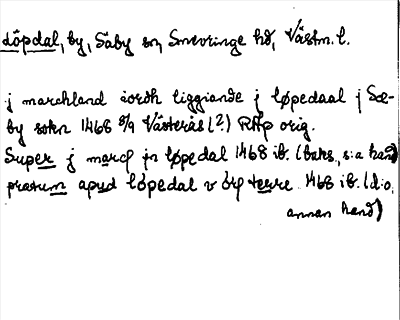 Löpdal, by, Säby sn, Snevringe hd, Västm. l.
j marchland iordh liggiande j løpedaal j Sæ-
by sokn 1466 8/9 Västerås (?) RAp orig.
Super j marcl jn løpedal 1468 ib. (baks., s:a hand)
pratum apud løpedal v ørf terre 1468 ib. (d:o,
annan hand)